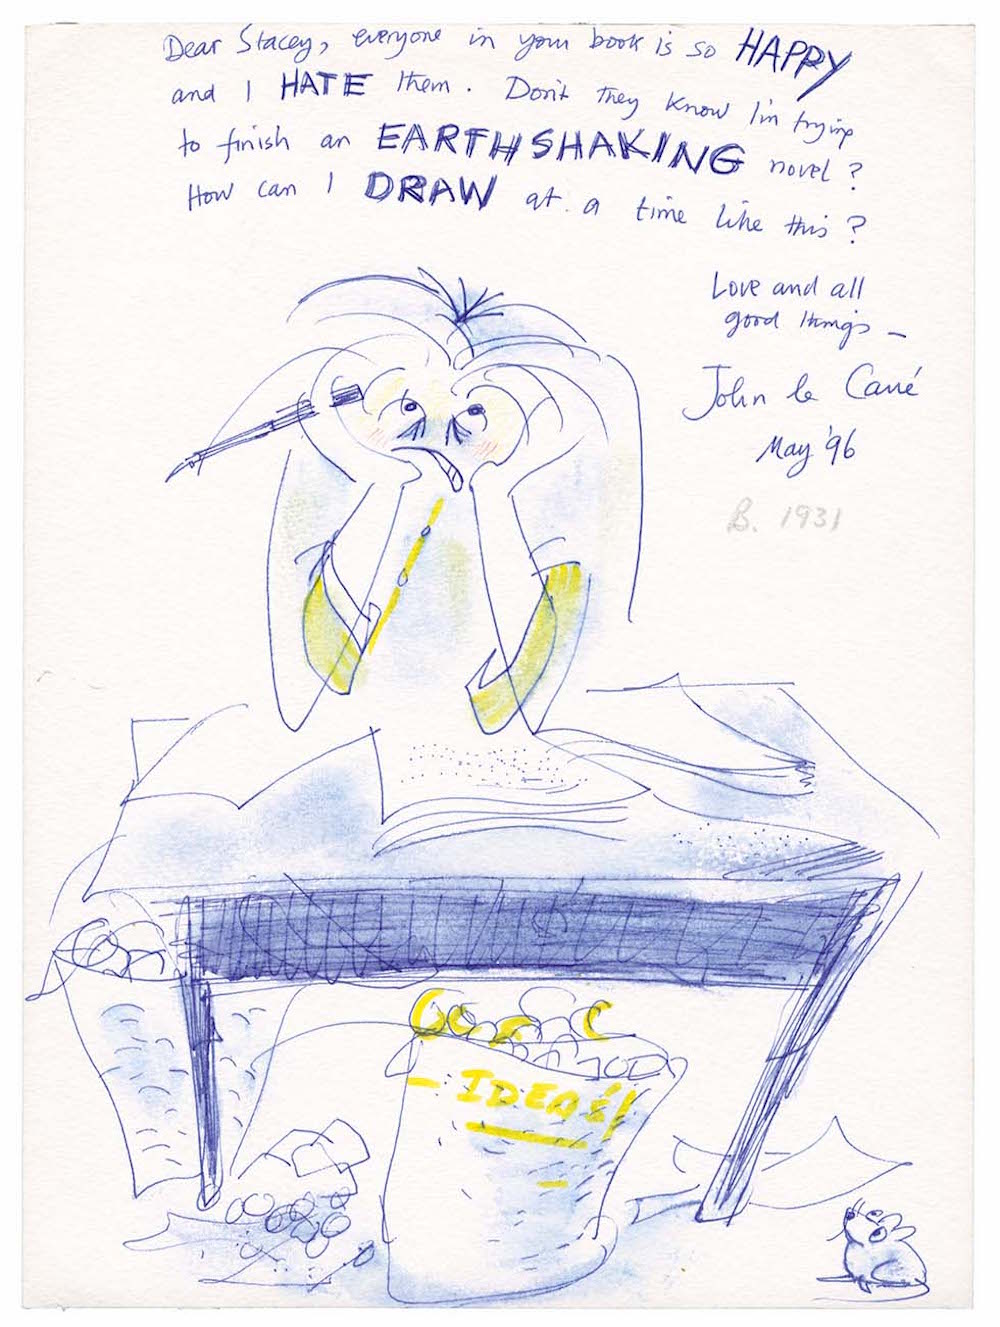 Dear Stacey, everyone in your book is so HAPPY
and I HATE them. Don't they know I'm trying
to finish an EARTHSHAKING novel?
How can I DRAW at a time like this?
Love and all
good things –
John le Carré
May '96
B. 1931
IDEAS!